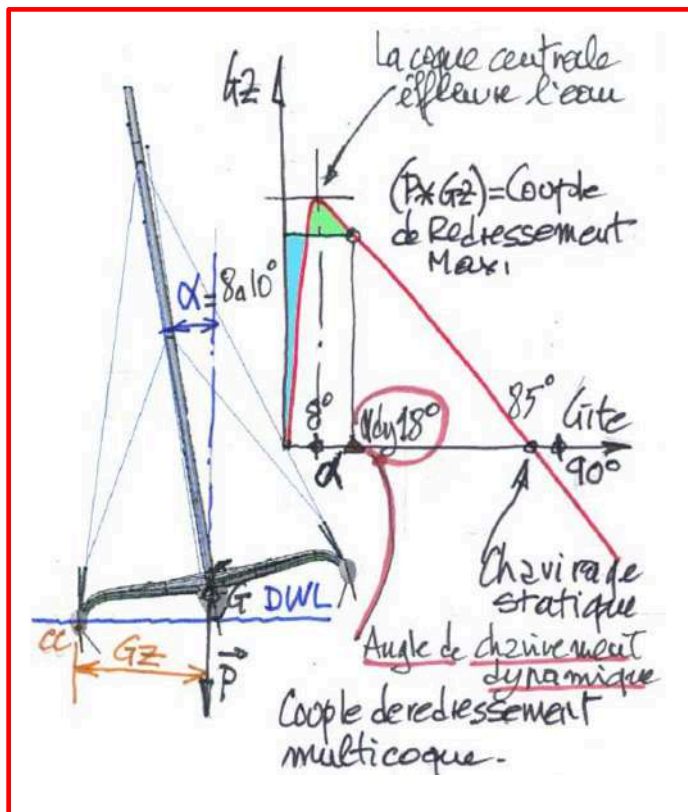 La coque centrale
éffleure l'eau
GZ
(P*GZ)=Couple
de Redressement
Maxi
α=8à10°
8°
α
αdy18°
85°
Gite
90°
Chavirage
statique
G
DWL
CC
GZ
P
Angle de chavirement
dynamique
Couple de redressement
multicoque.